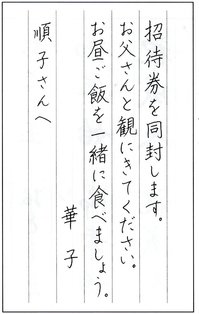 招待券を同封します。
お父さんと観にきてください。
お昼ご飯を一緒に食べましょう。
華子
順子さんへ